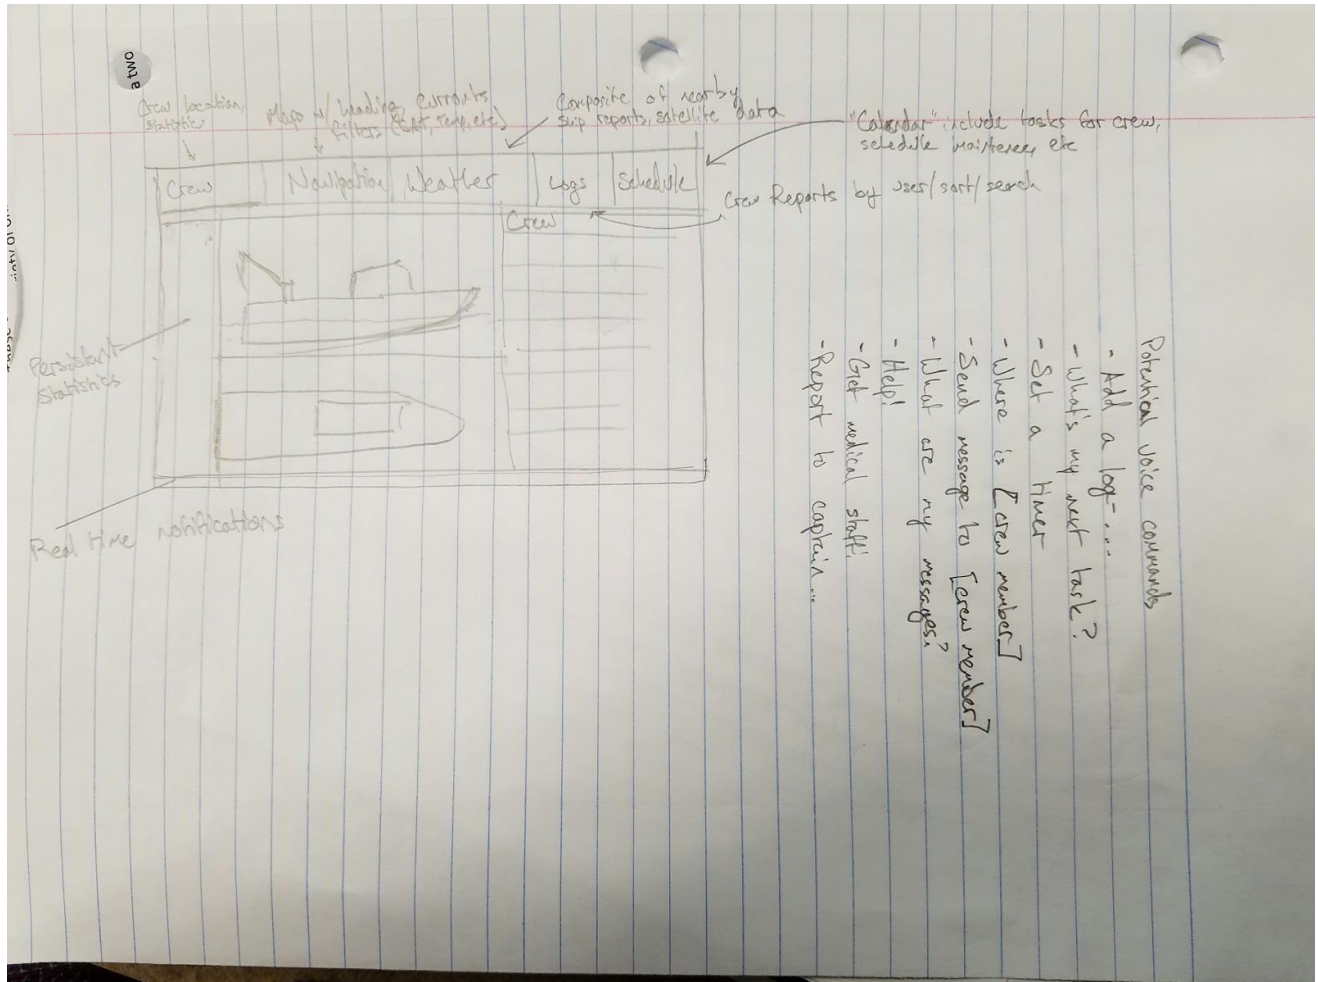 Crew location,
statistic
Maps w/ heading, currents
filters (
Composite of nearby
ship reports, satellite data
"Calendar" include tasks for crew,
schedule maintenece, etc
Crew
Navigation
Weather
Logs
Schedule
Crew Reports by user/sort/search
Crew
Persistant
Statistics
Real time notifications
Potential voice commands
- Add a log-....
- What's my next task?
- Set a timer
- Where is [crew member]
- Send message to [crew member]
- What are my messages?
- Help!
- Get medical staff!
- Report to captain...